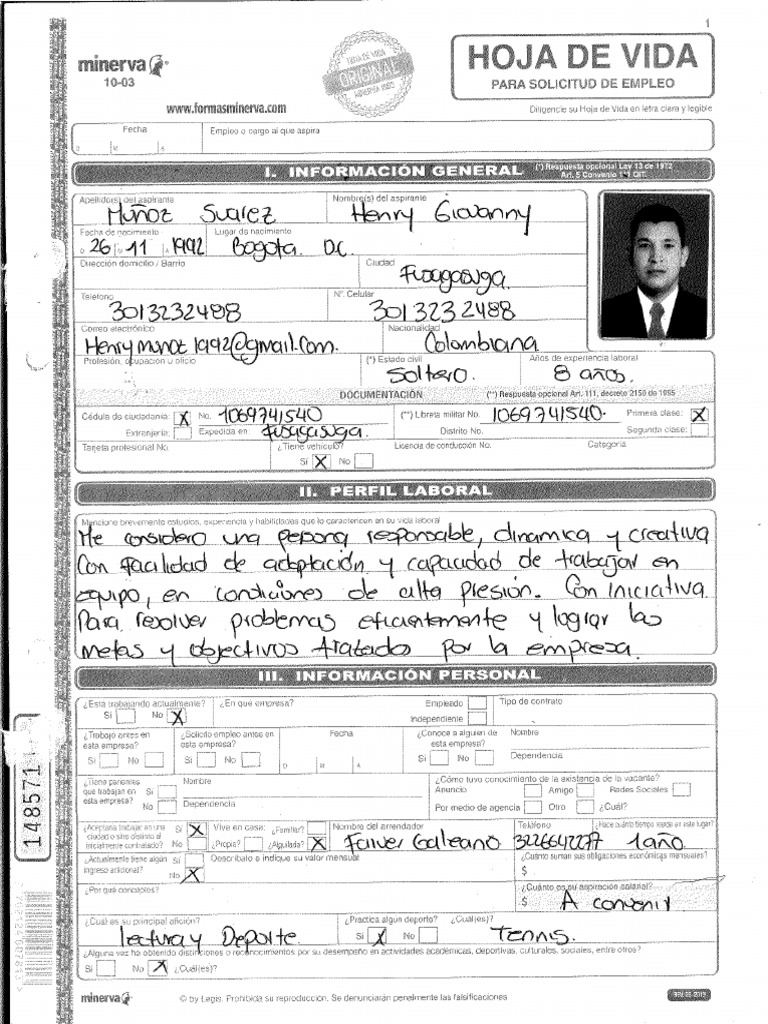 1
minerva
10-03
HOJA DE VIDA
ORIGINAL
PARA SOLICITUD DE EMPLEO
www.formasminerva.com
Diligencie su Hoja de Vida en letra clara y legible
Fecha
Empleo o cargo al que aspira
I. INFORMACIÓN GENERAL
(*) Respuesta opcional Ley 13 de 1972
Art. 5 Convenio 111 OIT.
Apellido(s) del aspirante Nombre(s) del aspirante
Muñoz Suarez Henry Giovanny
Fecha de nacimiento Lugar de nacimiento
D 26 M 11 A 1992 Bogota. D.C.
Dirección domicilio / Barrio Ciudad
Fusagasuga.
Teléfono Nº. Celular
3013232488 3013232488
Correo electrónico Nacionalidad
Henrymunoz1992@gmail.com. Colombiana
Profesión, ocupación u oficio (*) Estado civil Años de experiencia laboral
Soltero. 8 años.
DOCUMENTACIÓN (**) Respuesta opcional Art. 111, decreto 2150 de 1995
Cédula de ciudadanía: X No. 1069741540 (**) Libreta militar No. 1069741540. Primera clase: X
Extranjería: Expedida en: Fusagasuga. Distrito No. Segunda clase:
Tarjeta profesional No. ¿Tiene vehículo? Licencia de conducción No. Categoría
Si X No
II. PERFIL LABORAL
Mencione brevemente estudios, experiencia y habilidades que lo caractericen en su vida laboral
Me considero una persona responsable, dinamica y creativa
Con facilidad de adaptación y capacidad de trabajar en
equipo, en condiciones de alta presión. Con iniciativa.
Para resolver problemas eficientemente y lograr las
metas y objectivos tratados por la empresa.
III. INFORMACIÓN PERSONAL
¿Esta trabajando actualmente? ¿En qué empresa? Empleado Tipo de contrato
Si No X Independiente
¿Trabajo antes en esta empresa? ¿Solicito empleo antes en esta empresa? Fecha ¿Conoce a alguien de esta empresa? Nombre
Si No Si No D M A Si No Dependencia
¿Tiene parientes que trabajan en esta empresa? Si No Nombre
Dependencia
¿Cómo tuvo conocimiento de la existencia de la vacante?
Anuncio Amigo Redes Sociales
Por medio de agencia Otro ¿Cuál?
¿Aceptaría trabajar en una ciudad o sitio distinto al inicialmente contratado? Si X No
Vive en casa: ¿Familiar? ¿Propia? ¿Alquilada? X
Nombre del arrendador Teléfono ¿Hace cuánto tiempo reside en este lugar?
Faiver Galeano 3226642277 1 año
¿Actualmente tiene algún ingreso adicional? Si No X
Describalo e indique su valor mensual
¿Cuánto suman sus obligaciones económicas mensuales?
$
¿Por qué conceptos? ¿Cuánto es su aspiración salarial?
$ A convenir
¿Cuál es su principal afición? ¿Practica algún deporte? ¿Cuál(es)?
lectura y Deporte. Si X No Tennis.
¿Alguna vez ha obtenido distinciones o reconocimientos por su desempeño en actividades académicas, deportivas, culturales, sociales, entre otros?
Si No X ¿Cuál(es)?
minerva © by Legis. Prohibida su reproducción. Se denunciarán penalmente las falsificaciones
148571